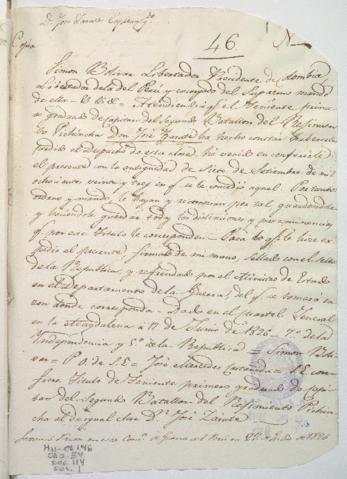 Dn. José Zarate
Copia
46.
Simon Bolivar Libertador Presidente de Colombia
Libertador de la del Perú y encargado del Supremo mando
de ella &.&.&. Atendiendo a qe. el Teniente prime
ro graduado de Capitan del Segundo Batallon del Regimien
to Pichincha Don José Zarate ha hecho constar
el despacho de esta clase, he venido en conferirle
el presente con la antiguedad de Siete de Setiembre de mil
ocho cientos veinte y tres en qe. se le concedió aquel. Por tanto
ordeno y mando, le hayan y reconozcan por tal guardandole
y haciendole guardar todas las distinciones y preeminencias
qe. por este titulo le corresponden. Para lo qe. le hice ex
pedir el presente, firmado de mi mano, sellado con el sello
de la Republica, y refrendado por el Ministro de Estado
en el Departamento de la Guerra, del qe. se tomará razon
donde corresponda. Dado en el cuartel General
en la Magdalena a 17 de Junio de 1826. 7º de la
Independencia y 5º de la Republica = Simon Boli
var = P. O. de S.E. = José Mercedes = S.E. con
fiere titulo de Teniente primero graduado de Capi
tan del Segundo Batallon del Regimiento Pichin
cha al de igual clase Dn. José Zarate